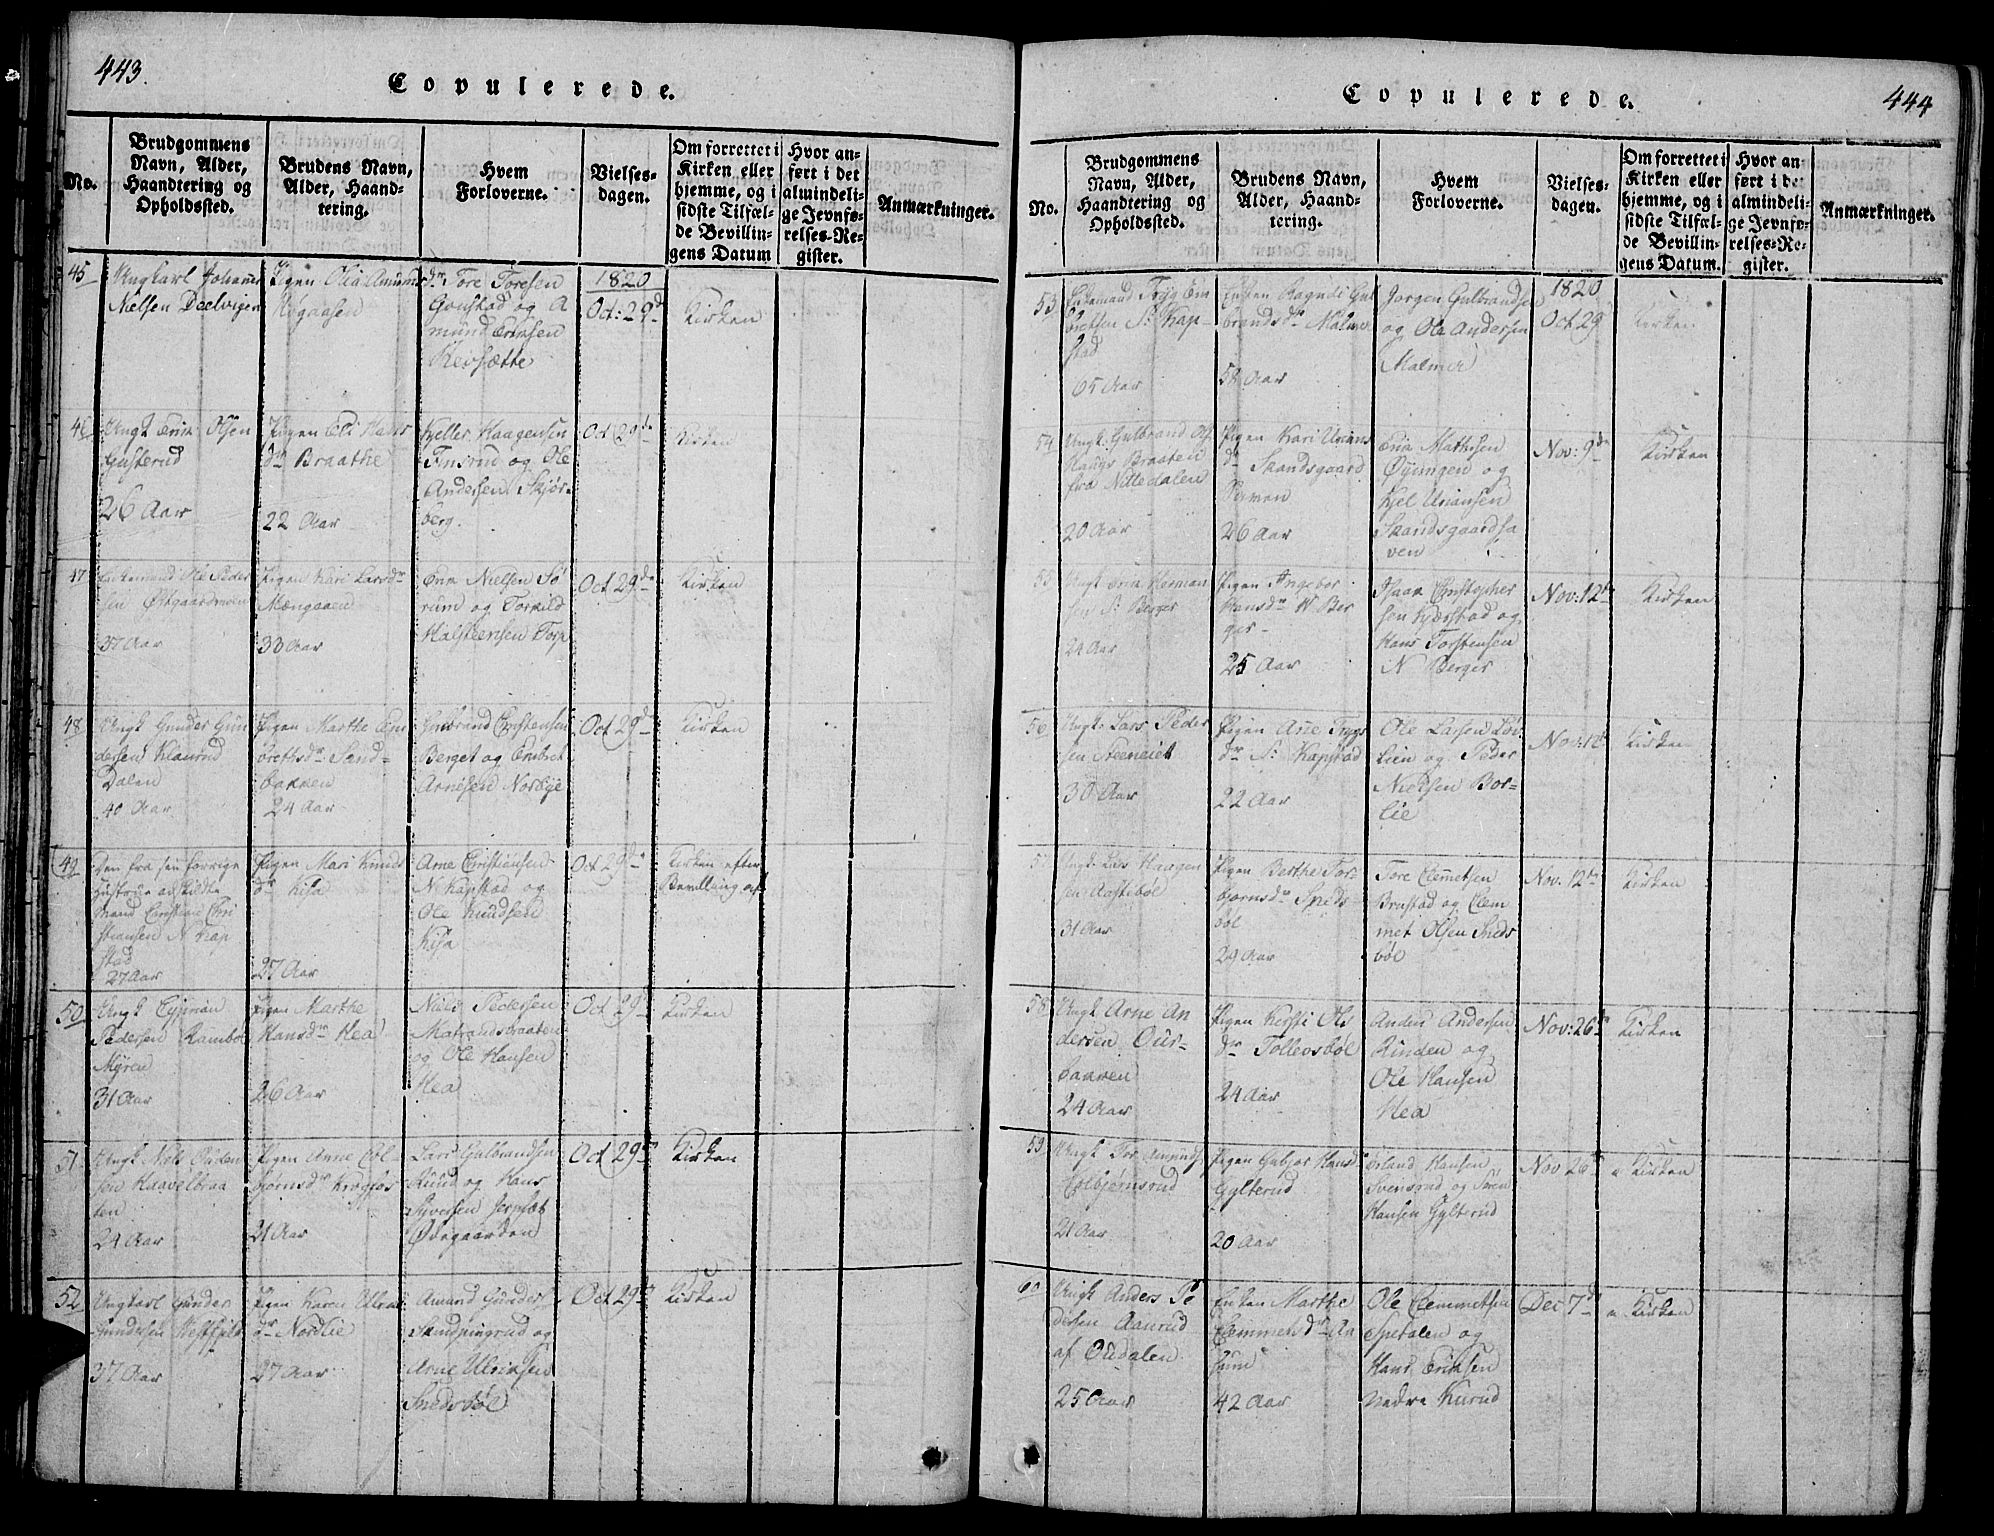 443.
Copulerede.
No.
Brudgommens
Navn, Alder,
Haandtering og
Opholdssted.
Brudens Navn,
Alder, Haand-
tering.
Hvem
Forloverne.
Vielses-
dagen.
Om forrettet i
Kirken eller
hjemme, og i
sidste Tilfæl-
de Bevillin-
gens Datum
Hvor an-
ført i det
almindeli-
ge Jevnfø-
relses-Re-
gister.
Anmærkninger.
45
Ungkarl Johannes
Nielsen Deelvigen
Pigen Olia Amunds
dr
Tore Toresen
Gonstad og A
mund
1820
Oct: 29d
Kirken
46
Ungk Erik Olsen
Gusterud
26 Aar
Pigen Eli Hans
dr Braathe
22 Aar
Kjeller Haagensen
Finsrud og Ole
Andersen Skjør-
berg.
Oct 29de
Kirken
47
Enkemand Ole Peder
sen Østgaardmoen
37 Aar
Pigen Kari Larsdr
Mængaaen
30 Aar
Erik Nielsen Sø
rum og Torkild
Halsteensen Torp
Oct 29de
Kirken
48
Ungk Gunder Gun
dersen Klanrud
Dalen
40 Aar
Pigen Marthe Em
bretsdr Sand-
bakken
24 Aar
Gulbrand Cristensen
Berget og Embret
Arnesen Norbye
Oct 29de
Kirken
49
Den fra sin forrige
Hustrue adskildte
Mand Christian Chri
stiansen N Kap
stad
27 Aar
Pigen Mari Knuds
dr Kisa
27 Aar
Arne Christiansen
N Kapstad og
Ole Knudsen
Kisa
Oct 29de
Kirken efter
Bevilling af
50
Ungk
Pedersen Rambøl
Myren
31 Aar
Pigen Marthe
Hansdr Hea
26 Aar
Niels Pedersen
Matrandbraaten
og Ole Hansen
Hea
Oct 29de
Kirken
51
Ungk Niels Ouden
sen Haavelbraa
ten
24 Aar
Pigen Anne Col-
bjørnsdr Krogfos
21 Aar
Lars Gulbrandsen
Ruud og Hans
Syversen
Ødegaarden
Oct 29de
Kirken
52
Ungkarl Gunder
Gundersen Westfjeld
37 Aar
Pigen Karen Ulriks
dr Nordlie
27 Aar
Amund Gunders
og
Arne Ulriksen
Snedsbøl
Oct 29de
Kirken
Copulerede.
444
No.
Brudgommens
Navn, Alder,
Haandtering og
Opholdssted.
Brudens Navn,
Alder, Haand-
tering.
Hvem
Forloverne.
Vielses-
dagen.
Om forrettet i
Kirken eller
hjemme, og i
sidste Tilfæl-
de Bevillin-
gens Datum.
Hvor an-
ført i det
almindeli-
ge Jevnfø-
relses-Re-
gister.
Anmærkninger.
53
Enkemand Tryg Em
bretsen S: Kap-
stad
65 Aar
Enken Ragndi Gul
brandsdr Malmer
58 Aar
Jørgen Gulbrandsen
og Ole Andersen
Malmer
1820
Oct 29
Kirken
54
Ungk: Gulbrand Ol
Haugs Braaten
fra Nittedalen
20 Aar
Pigen Kari Urians
dr Skandsgaard
26 Aar
Erik Mathisen
Øyungen og
Kjel Uriansen
Skandsgaardsa
ven
Nov: 9de
Kirken
55
Ungk Erik Herman
sen S: Berger
24 Aar
Pigen Ingebor
Hansdr N Ber
ger
25 Aar
Isaak Christopher
sen Kjærstad og
Hans Torstensen
N Berger
Nov: 12te
Kirken
56
Ungk: Lars Peder
sen Steeneiet
30 Aar
Pigen Ane Trygs
dr S: Kapstad
22 Aar
Ole Larsen Løv
lien og Peder
Nielsen Bor-
lie
Nov: 12t
Kirken
57
Ungk Lars Haagen
sen Aastebøl
31 Aar
Pigen Berthe Tor-
bjørnsdr Sneds-
bøl
29 Aar
Tore Clemetsen
Brustad og Clem
met Olsen Sneds
bøl
Nov. 12te
Kirken
58
Ungk Arne An
dersen Our-
bakken
24 Aar
Pigen Kersti Ols
dr Tollevsbøl
24 Aar
Anders Andersen
Rinden og
Ole Hansen
Hea
Nov: 26te
Kirken
59
Ungk Tor Amunds
Colbjørnsrud
21 Aar
Pigen Gubjør Hans d
Gylterud
20 Aar
Erland Hansen
Svensrud og Sven
Hansen Gylterud
Nov 26de
Kirken
60
Ungk Anders Pe
dersen Aanrud
af Oudalen
25 Aar
Enken Marthe
Clemmetsdr Aa
42 Aar
Ole Clemmetsen
Spetalen og
Hans Eriksen
Nedre Kurud
Dec 7de
Kirken